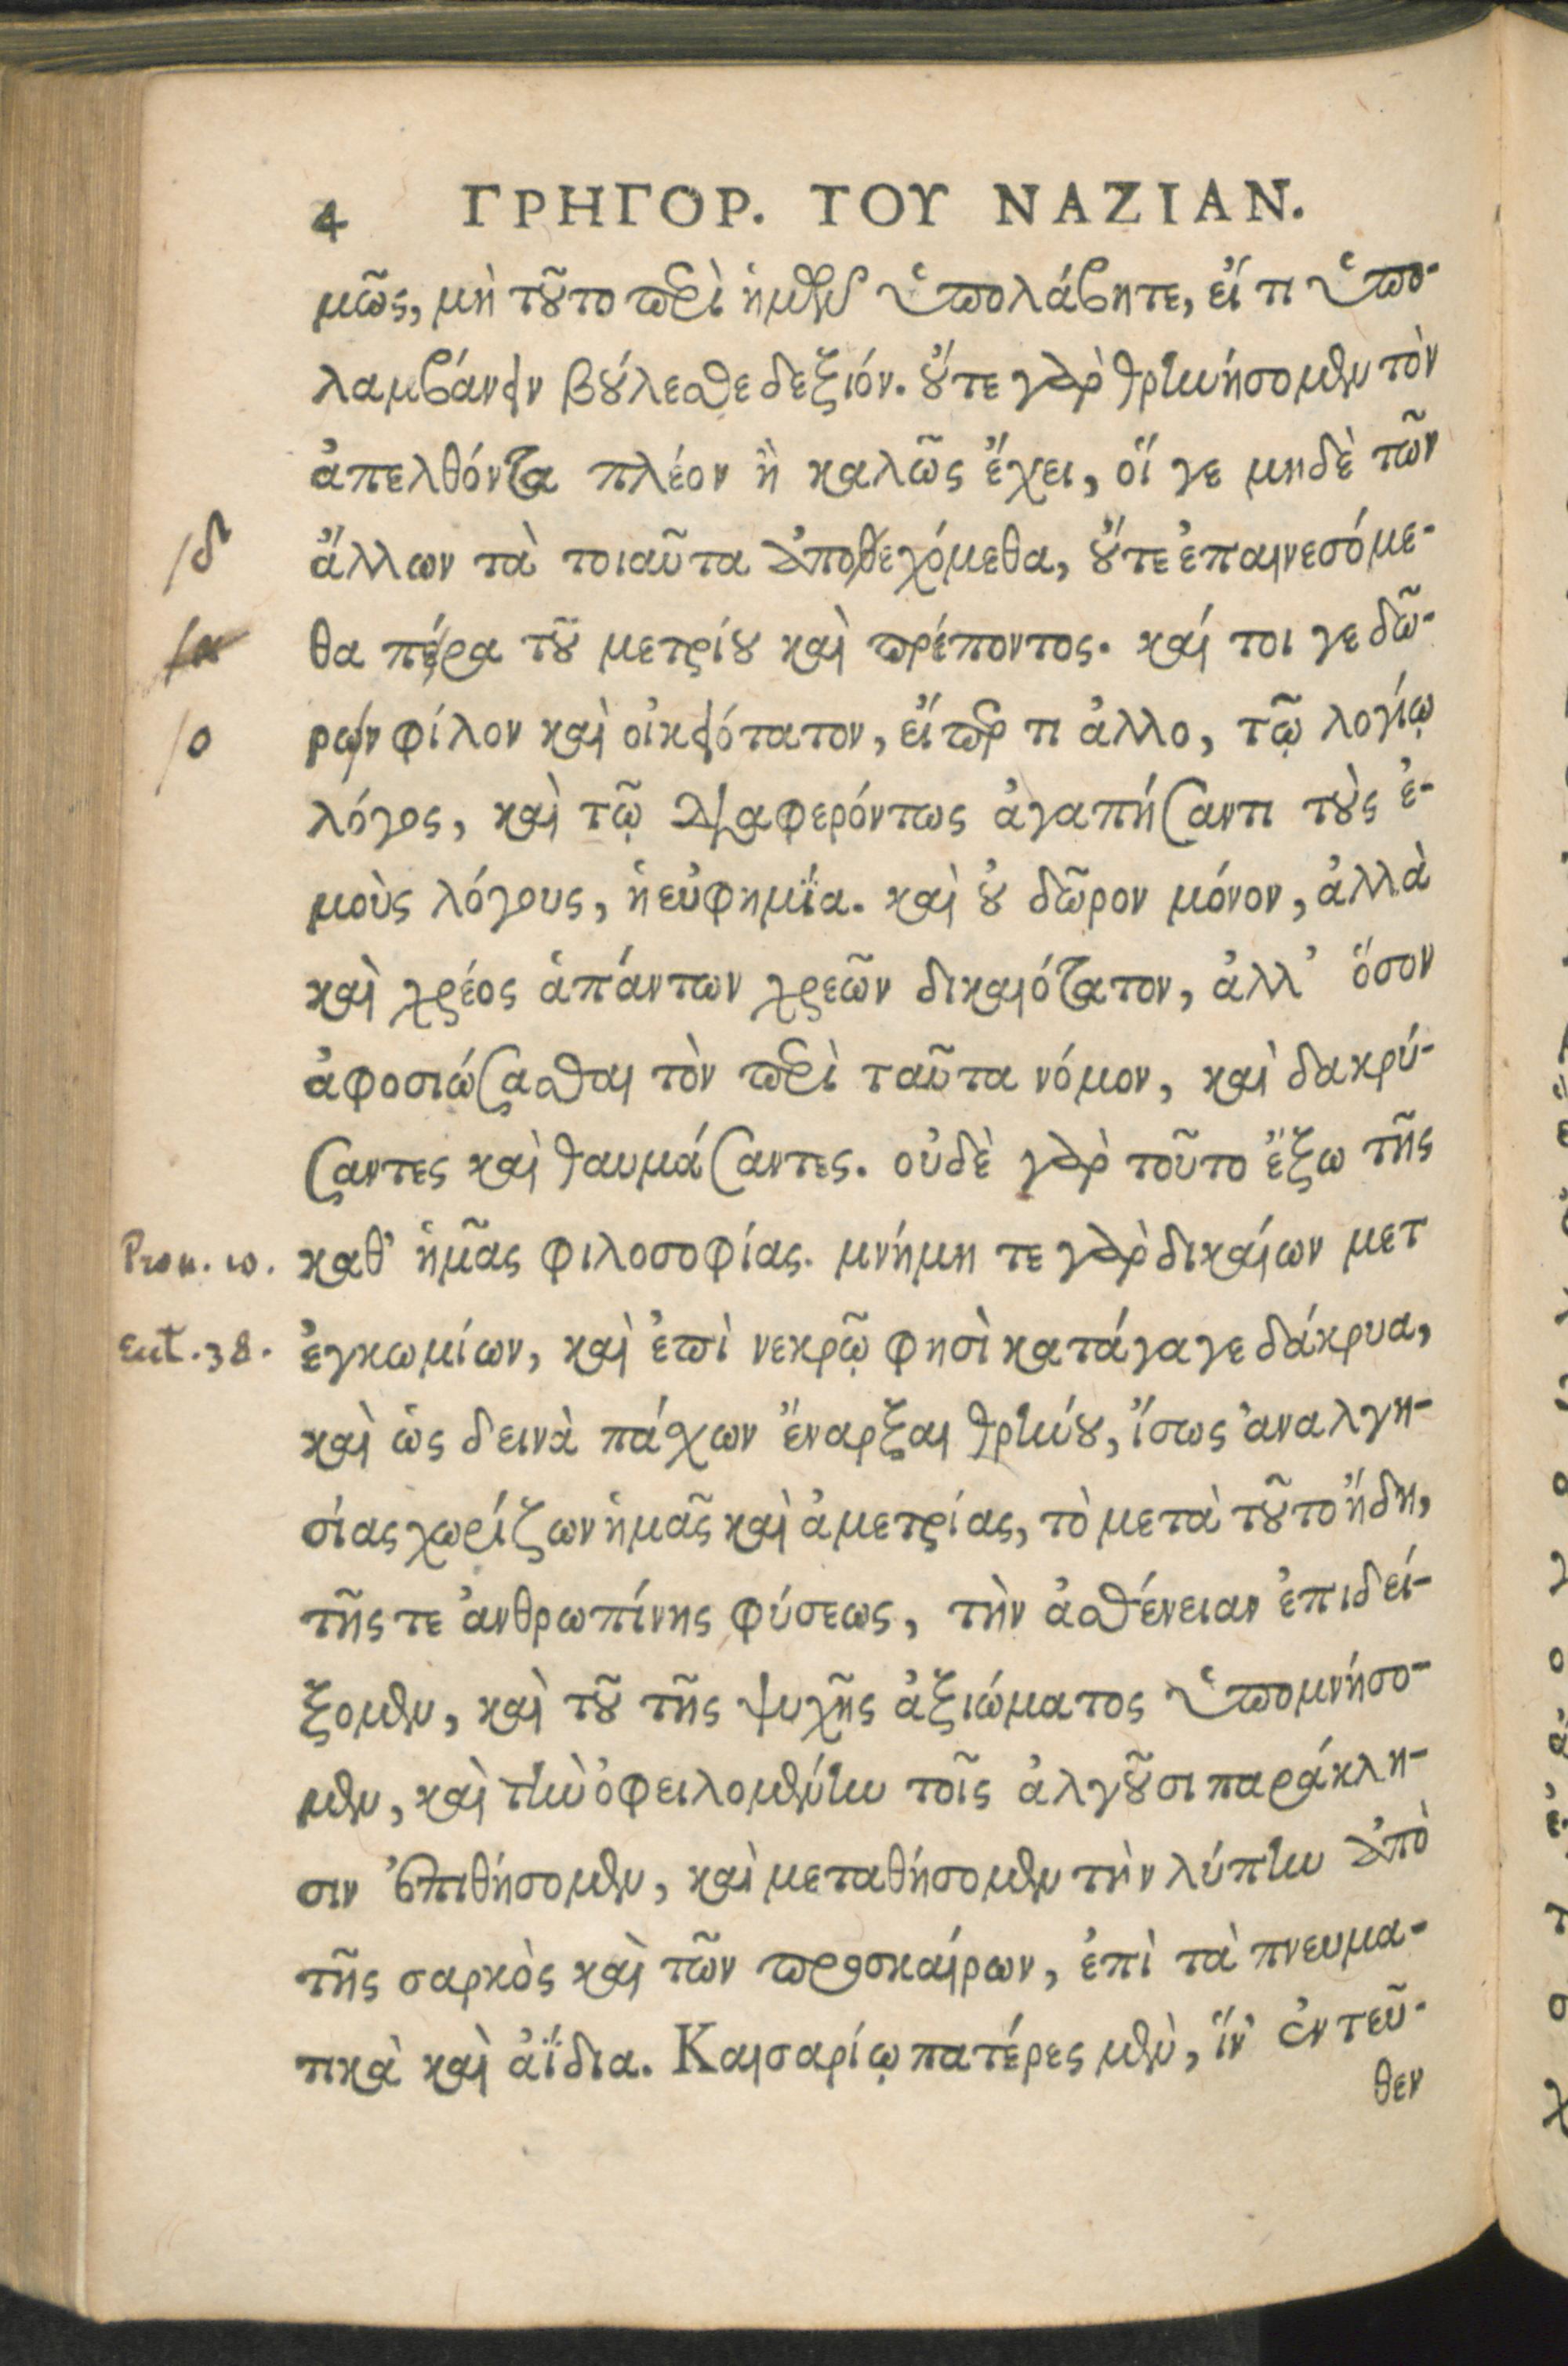 4 ΓΡΗΓΟΡ. ΤΟΥ ΝΑΖΙΑΝ.
μῶς, μὴ τοῦτο περὶ ἡμῶν ὑπολάβητε, εἴ τι ὑπο-
λαμβάνειν βούλεσθε δεξιόν. οὔτε γὰρ θρηνήσομεν τὸν
ἀπελθόντα πλέον ἢ καλῶς ἔχει, οἵ γε μηδὲ τῶν
/δ ἄλλων τὰ τοιαῦτα ἀποθεχόμεθα, οὔτε ἐπαινεσόμε-
θα πέρα τοῦ μετρίου καὶ πρέποντος. καί τοι γε δῶ-
/ο ρων φίλον καὶ οἰκειότατον, εἴπερ τι ἄλλο, τῷ λογίῳ
λόγος, καὶ τῷ διαφερόντως ἀγαπήσαντι τοὺς ἐ-
μοὺς λόγους, ἡ εὐφημΐα. καὶ οὐ δῶρον μόνον, ἀλλὰ
καὶ χρέος ἁπάντων χρεῶν δικαιότατον, ἀλλ' ὅσον
ἀφοσιώσασθαι τὸν περὶ ταῦτα νόμον, καὶ δακρύ-
σαντες καὶ θαυμάσαντες. οὐδὲ γὰρ τοῦτο ἔξω τῆς
Prou. 10. καθ' ἡμᾶς φιλοσοφίας. μνήμη τε γὰρ δικαίων μετ
Eccl. 38. ἐγκωμίων, καὶ ἐπὶ νεκρῷ φησὶ κατάγαγε δάκρυα,
καὶ ὡς δεινὰ πάσχων ἔναρξαι θρήνου, ἴσως ἀναλγη-
σίας χωρίζων ἡμᾶς καὶ ἀμετρίας, τὸ μετὰ τοῦτο ἤδη,
τῆς τε ἀνθρωπίνης φύσεως, τὴν ἀσθένειαν ἐπιδεί-
ξομεν, καὶ τοῦ τῆς ψυχῆς ἀξιώματος ὑπομνήσο-
μεν, καὶ τὴν ὀφειλομένην τοῖς ἀλγοῦσι παράκλη-
σιν ἐπιθήσομεν, καὶ μεταθήσομεν τὴν λύπην ἀπὸ
τῆς σαρκὸς καὶ τῶν προσκαίρων, ἐπὶ τὰ πνευμα-
τικὰ καὶ ἀΐδια. Καισαρίῳ πατέρες μὲν, ἵν' ἐντεῦ-
θεν